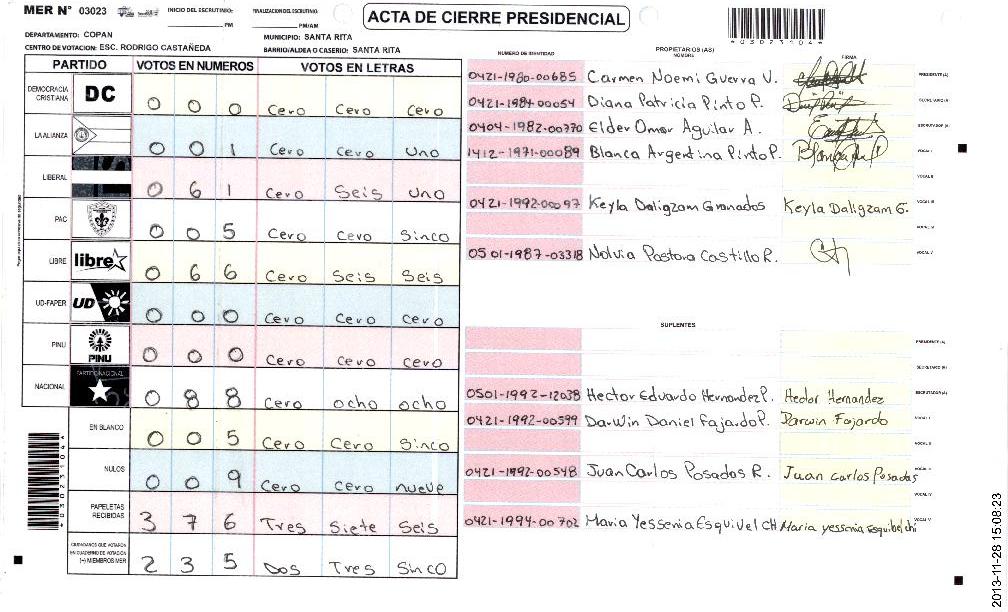 MER Nº 03023 INICIO DEL ESCRUTINIO: PM FINALIZACION DEL ESCRUTINIO: PM/AM
ACTA DE CIERRE PRESIDENCIAL
*03023104*
DEPARTAMENTO: COPAN MUNICIPIO: SANTA RITA
CENTRO DE VOTACION: ESC. RODRIGO CASTAÑEDA BARRIO/ALDEA O CASERIO: SANTA RITA
PARTIDO VOTOS EN NUMEROS VOTOS EN LETRAS
DEMOCRACIA CRISTIANA DC 0 0 0 Cero Cero Cero
LA ALIANZA 0 0 1 Cero Cero Uno
LIBERAL 0 6 1 Cero Seis Uno
PAC 0 0 5 Cero Cero Sinco
LIBRE libre 0 6 6 Cero Seis Seis
UD-FAPER UD 0 0 0 Cero Cero Cero
PINU PINU 0 0 0 Cero Cero Cero
NACIONAL PARTIDO NACIONAL 0 8 8 Cero ocho ocho
EN BLANCO 0 0 5 Cero Cero Sinco
NULOS 0 0 9 Cero Cero nueve
PAPELETAS RECIBIDAS 3 7 6 Tres Siete Seis
CIUDADANOS QUE VOTARON EN CUADERNO DE VOTACION (+) MIEMBROS MER 2 3 5 Dos Tres Sinco
*03023104*
PROPIETARIOS (AS)
NUMERO DE IDENTIDAD NOMBRE FIRMA
0421-1980-00685 Carmen Noemi Guerra V. PRESIDENTE(A)
0421-1984-00054 Diana Patricia Pinto P. SECRETARIO(A)
0404-1982-00770 Elder Omar Aguilar A. ESCRUTADOR(A)
1412-1971-00089 Blanca Argentina Pinto P. VOCAL I
VOCAL II
0421-1992-00097 Keyla Daligzam Granados Keyla Daligzam G. VOCAL III
VOCAL IV
0501-1987-03318 Nolvia Pastora Castillo R. VOCAL V
SUPLENTES
PRESIDENTE(A)
SECRETARIO(A)
0501-1992-12038 Hector Eduardo Hernandez P. Hector Hernandez ESCRUTADOR(A)
0421-1992-00599 Darwin Daniel Fajardo P. Darwin Fajardo VOCAL I
VOCAL II
0421-1992-00548 Juan Carlos Posadas R. Juan carlos Posadas VOCAL III
VOCAL IV
0421-1994-00702 Maria Yessenia Esquivel CH Maria yessenia Esquibelchi VOCAL V
2013-11-28 15:08:23